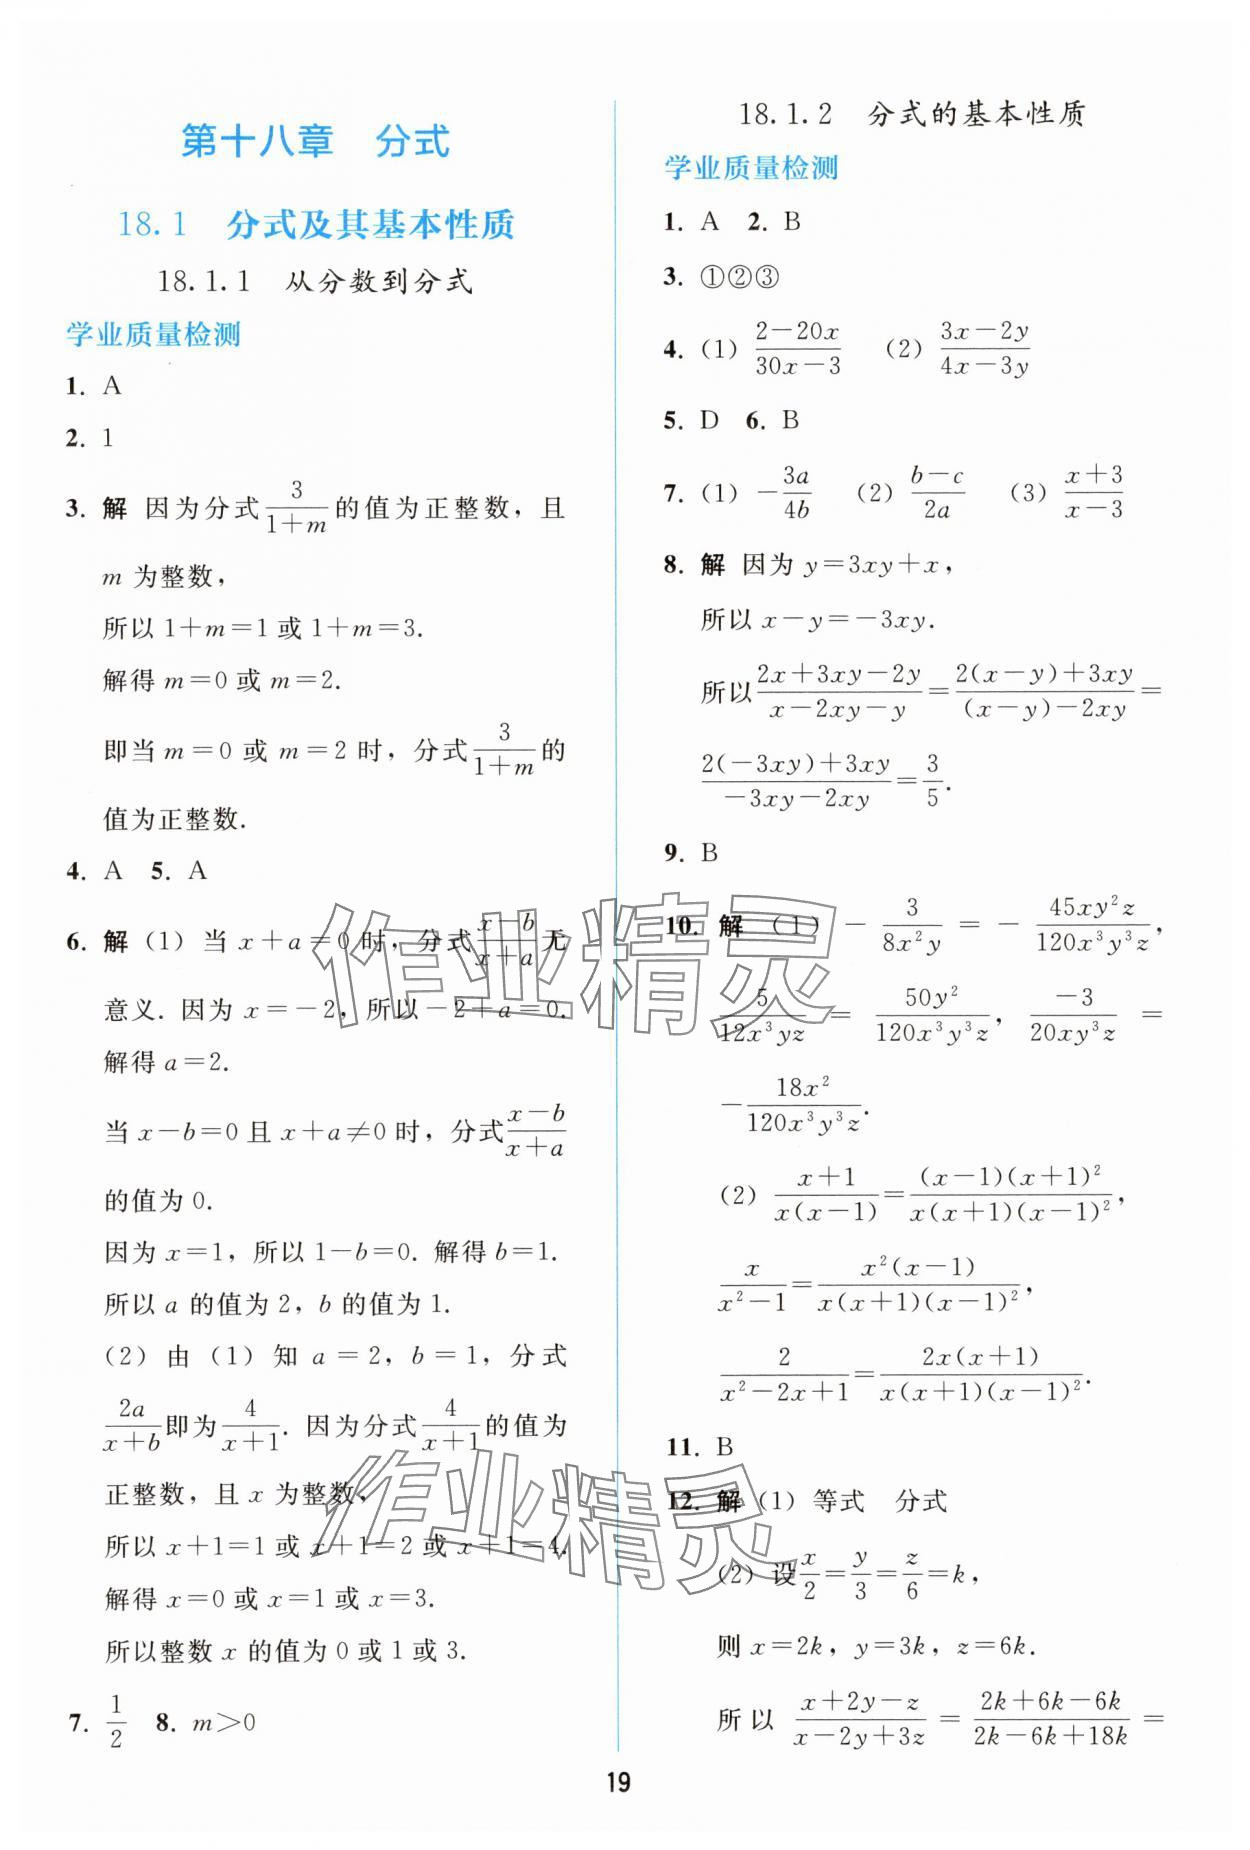 第十八章 分式
18.1 分式及其基本性质
18.1.1 从分数到分式
学业质量检测
1. A
2. 1
3. 解 因为分式3/(1+m)的值为正整数，且
m 为整数，
所以 1+m=1 或 1+m=3.
解得 m=0 或 m=2.
即当 m=0 或 m=2 时，分式3/(1+m)的
值为正整数.
4. A 5. A
6. 解 (1) 当 x+a=0 时，分式(x-b)/(x+a)无
意义. 因为 x=-2，所以-2+a=0.
解得 a=2.
当 x-b=0 且 x+a≠0 时，分式(x-b)/(x+a)
的值为 0.
因为 x=1，所以 1-b=0. 解得 b=1.
所以 a 的值为 2，b 的值为 1.
(2) 由 (1) 知 a=2，b=1，分式
2a/(x+b)即为4/(x+1). 因为分式4/(x+1)的值为
正整数，且 x 为整数，
所以 x+1=1 或 x+1=2 或 x+1=4.
解得 x=0 或 x=1 或 x=3.
所以整数 x 的值为 0 或 1 或 3.
7. 1/2 8. m>0
18.1.2 分式的基本性质
学业质量检测
1. A 2. B
3. ①②③
4. (1) (2-20x)/(30x-3) (2) (3x-2y)/(4x-3y)
5. D 6. B
7. (1) -3a/4b (2) (b-c)/2a (3) (x+3)/(x-3)
8. 解 因为 y=3xy+x，
所以 x-y=-3xy.
所以(2x+3xy-2y)/(x-2xy-y)=(2(x-y)+3xy)/((x-y)-2xy)=
(2(-3xy)+3xy)/(-3xy-2xy)=3/5.
9. B
10. 解 (1) -3/(8x²y)=-45xy²z/(120x³y³z)，
5/(12x³yz)=50y²/(120x³y³z)，-3/(20xy³z)=
-18x²/(120x³y³z).
(2) (x+1)/(x(x-1))=((x-1)(x+1)²)/(x(x+1)(x-1)²)，
x/(x²-1)=(x²(x-1))/(x(x+1)(x-1)²)，
2/(x²-2x+1)=(2x(x+1))/(x(x+1)(x-1)²).
11. B
12. 解 (1) 等式 分式
(2) 设x/2=y/3=z/6=k，
则 x=2k，y=3k，z=6k.
所以 (x+2y-z)/(x-2y+3z)=(2k+6k-6k)/(2k-6k+18k)=
19
作业精灵
作业精灵